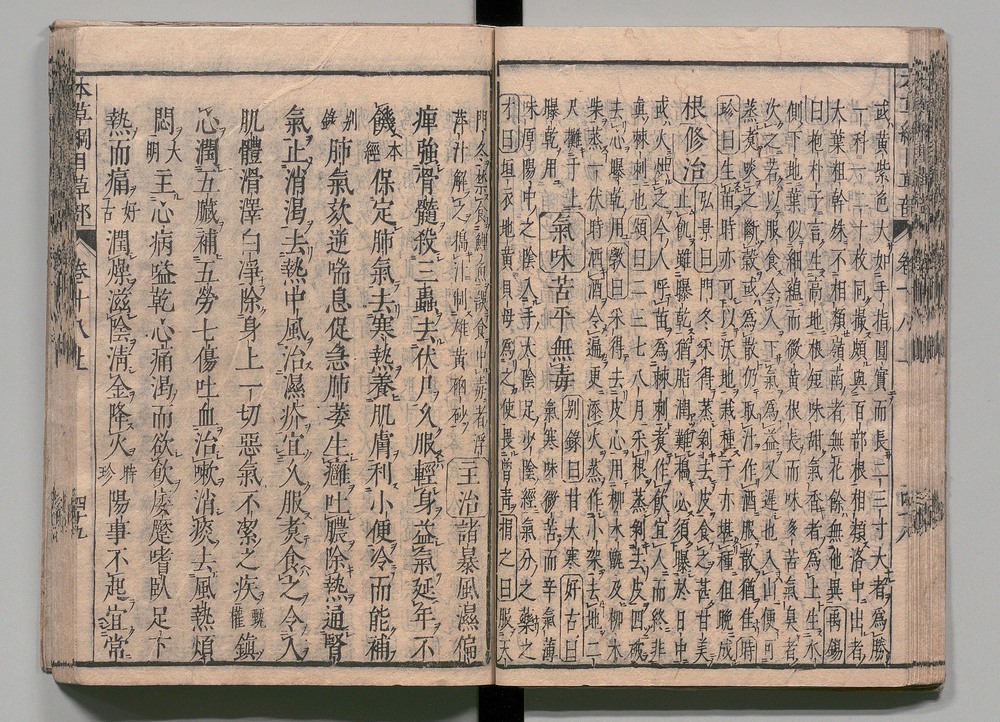 或黄紫色大如手指圓實而長二三寸大者為勝
一科一二十枚同撮頗與百部根相類洛中出者
大葉粗幹殊不相類嶺南者無花餘無他異禹錫
曰抱朴子言生高地根短味甜氣香者為上生水
側下地葉似細蘊而微黄根長而味多苦氣臭者
次之若以服食令人下氣為益又遲也入山便可
蒸煮啖之斷穀或為散仍取汁作酒服散猶佳時
珍曰生苗時亦可以沃地栽種子亦堪種但晩成
根修治弘景曰門冬采得蒸剥去皮食之甚甘美
止飢雖曝乾猶脂潤難擣必須曝於日中
或火烘之今人呼苗為棘刺煮作飲宜人而終非
真棘刺也頌曰二三七八月采根蒸剥去皮四破
去心曝乾用斅曰采得去皮心用柳木甑及柳木
柴蒸一伏時洒酒令遍更添火蒸作小架去地二
尺攤于上曝乾用氣味苦平無毒别録曰甘大寒好古曰
氣寒味微苦而辛氣薄
味厚陽中之陰入手太陰足少陰經氣分之藥之
才曰垣衣地黄貝母為之使畏曾青損之曰服天
門冬禁食鯉魚誤食中毒者浮
萍汁解之擣汁制雄黄硇砂主治諸暴風濕偏
痺強骨髓殺三蟲去伏尸久服輕身益氣延年不
饑本經保定肺氣去寒熱養肌膚利小便冷而能補
别録肺氣欬逆喘息促急肺萎生癰吐膿除熱通腎
氣止消渴去熱中風治濕疥宜久服煮食之令人
肌體滑澤白凈除身上一切惡氣不潔之疾甄權鎮
心潤五臟補五勞七傷吐血治嗽消痰去風熱煩
悶大明主心病嗌乾心痛渴而欲飲痿躄嗜臥足下
熱而痛好古潤燥滋陰清金降火時珍陽事不起宜常
本草綱目草部
卷十八上
四十五